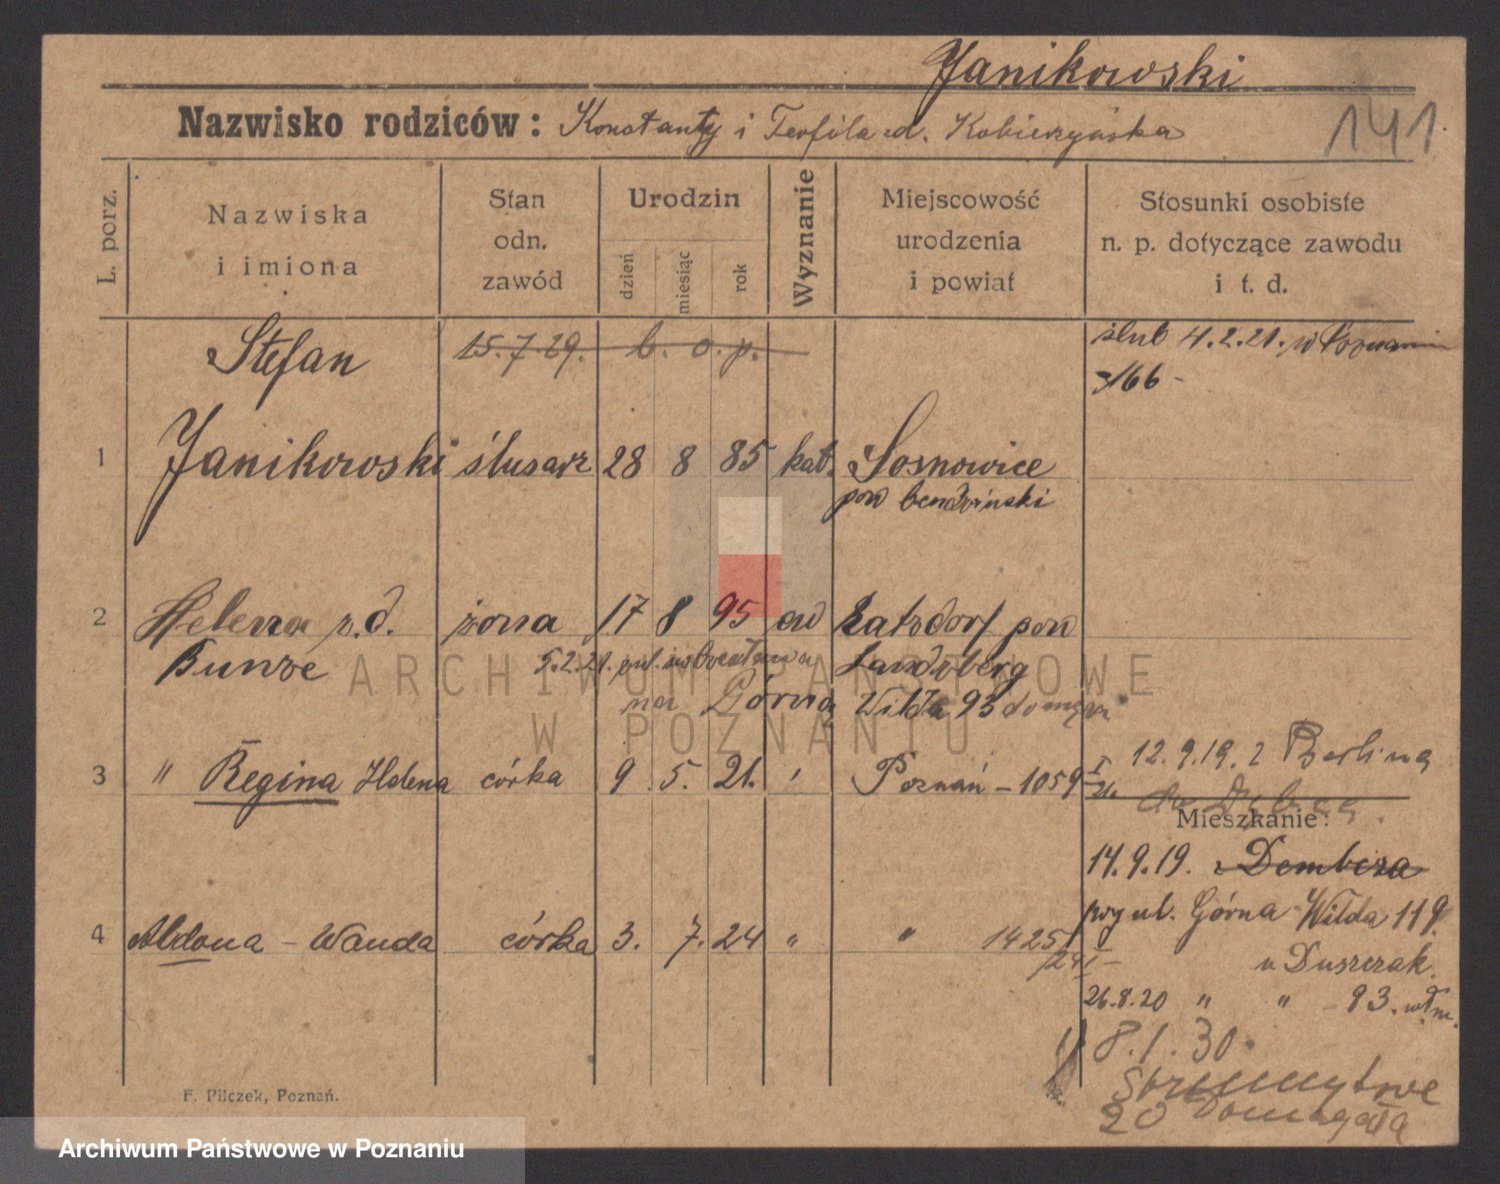 Janikowski
141.
Nazwisko rodziców: Konstanty i Teofila zd. Kobierzyńska
L. porz.
Nazwiska i imiona
Stan odn. zawód
Urodzin
dzień
miesiąc
rok
Wyznanie
Miejscowość urodzenia i powiat
Stosunki osobiste n. p. dotyczące zawodu i t. d.
Stefan 15.7.29. b. o. p.
ślub 4.2.21. w Poznaniu
166 -
1 Janikowski ślusarz 28 8 85 kat. Sosnowice
pow bendziński
2 Helena z.d. żona 17 8 95 ew Ratzdorf pow
Bunze 5.2.21. Landsberg
na Górną Wilda 93
3 " Regina Helena córka 9. 5. 21. ' Poznań - 1059 I/21.
12.9.19. z Berlina
do Dębca.
Mieszkanie:
14.9.19. Dembcza
przy ul. Górna Wilda 119.
4 Aldona - Wanda córka 3. 7. 24 " " 1425/24 I -
u Duszczak.
26.8.20 " " - 93. włm.
8.1.30.
20 Domagała
F. Pilczek, Poznań.
ARCHIWUM PAŃSTWOWE
W POZNANIU
Archiwum Państwowe w Poznaniu